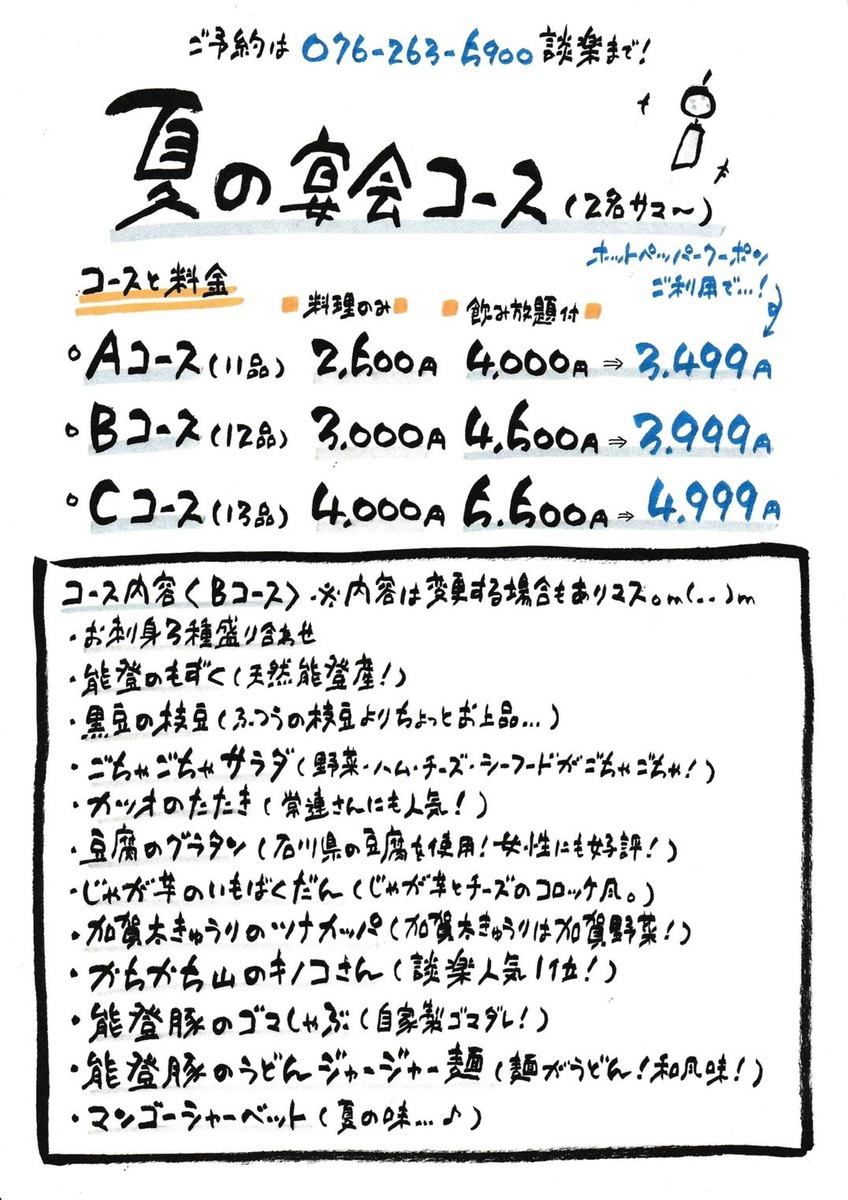 ご予約は 076-263-5900 談楽まで!
夏の宴会コース(2名サマ〜)
ホットペッパークーポン
ご利用で…!
コースと料金
料理のみ 飲み放題付
Aコース(11品) 2,500円 4,000円⇒3,499円
Bコース(12品) 3,000円 4,500円⇒3,999円
Cコース(13品) 4,000円 5,500円⇒4,999円
コース内容〈Bコース〉※内容は変更する場合もありマス。m(..)m
・お刺身3種盛り合わせ
・能登のもずく(天然能登産!)
・黒豆の枝豆(ふつうの枝豆よりちょっとお上品…)
・ごちゃごちゃサラダ(野菜・ハム・チーズ・シーフードがごちゃごちゃ!)
・カツオのたたき(常連さんにも人気!)
・豆腐のグラタン(石川県の豆腐を使用!女性にも好評!)
・じゃが芋のいもばくだん(じゃが芋とチーズのコロッケ風。)
・加賀太きゅうりのツナカッパ(加賀太きゅうりは加賀野菜!)
・かちかち山のキノコさん(談楽人気1位!)
・能登豚のゴマしゃぶ(自家製ゴマダレ!)
・能登豚のうどんジャージャー麺(麺がうどん!和風味!)
・マンゴーシャーベット(夏の味…♪)